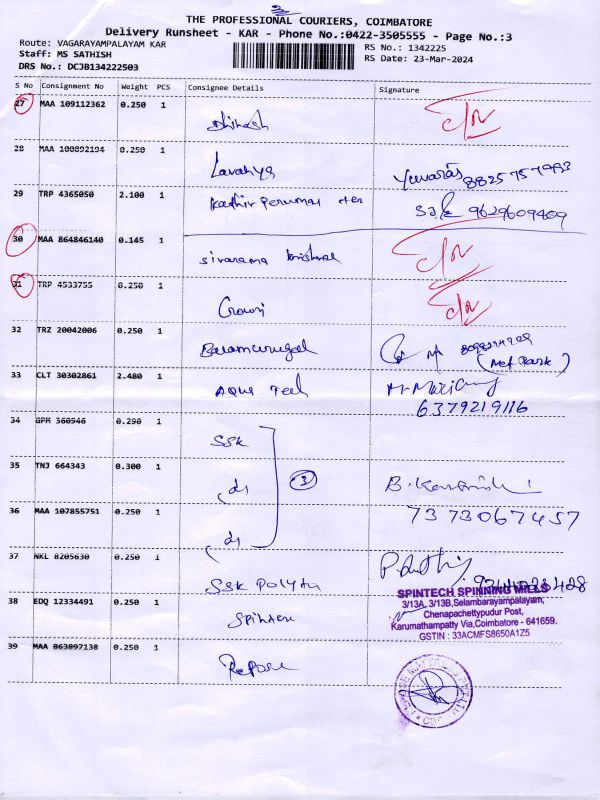 THE PROFESSIONAL COURIERS, COIMBATORE
Delivery Runsheet - KAR - Phone No.:0422-3505555 - Page No.:3
Route: VAGARAYAMPALAYAM KAR
RS No.: 1342225
Staff: MS SATHISH
RS Date: 23-Mar-2024
DRS No.: DCJB134222503
S No Consignment No Weight PCS Consignee Details Signature
27 MAA 109112362 0.250 1
28 MAA 100892194 0.250 1
Lavanya Yuvaraj
29 TRP 4365050 2.100 1
Kadhir Perumal 9629609409
30 MAA 864846140 0.145 1
Sivarama Krishnal
31 TRP 4533755 0.250 1
Crown
32 TRZ 20042006 0.250 1
Balamurugal
33 CLT 30302861 2.480 1
Aqua Tech
6379219116
34 GPM 360946 0.290 1
SSK
35 TNJ 664343 0.300 1
3
36 MAA 107855751 0.250 1
7373067457
37 NKL 8205630 0.250 1
SSK Polytex
SPINTECH SPINNING MILLS
3/13A, 3/13B,Selambarayampalayam,
38 EDQ 12334491 0.250 1
Chenapachettypudur Post,
Karumathampatty Via,Coimbatore - 641659.
GSTIN : 33ACMFS8650A1Z5
39 MAA 863897138 0.250 1
Repose